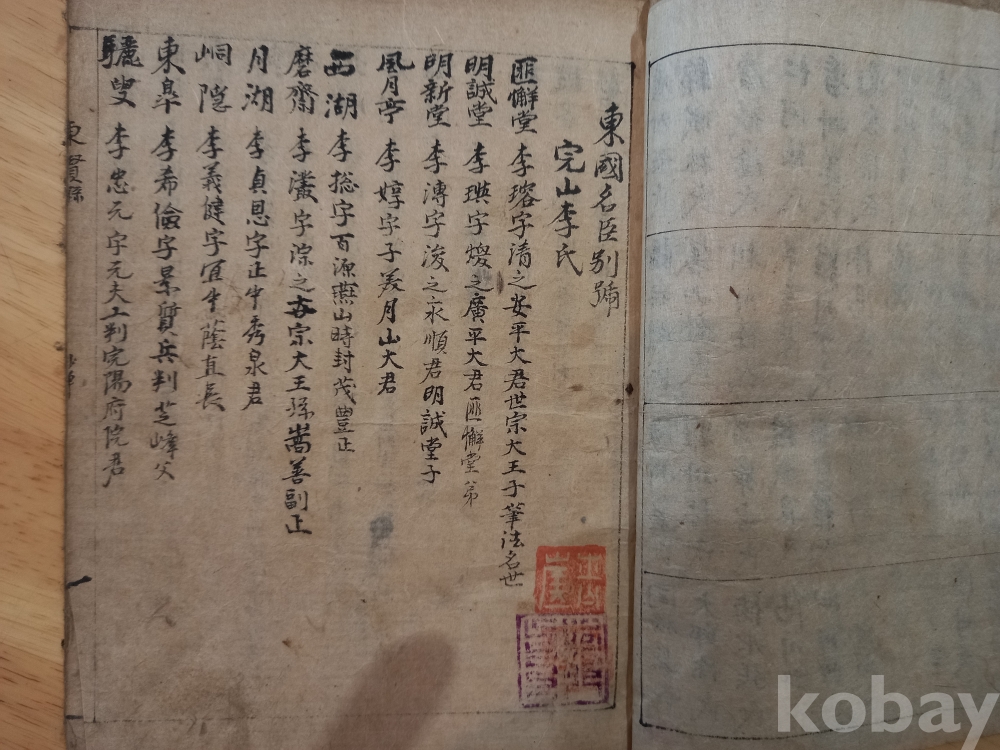 東國名臣别號
完山李氏
匪懈堂 李瑢字淸之安平大君世宗大王子筆法名世
明誠堂 李瑛字煖之廣平大君匪懈堂弟
明新堂 李溥字浚之永順君明誠堂子
風月亭 李婷字子美月山大君
西湖 李捴字百源燕山時封茂豊正
磨齋 李灇字深之 宗大王孫嵩善副正
月湖 李貞恩字正中秀泉君
峒隱 李義健字宜中蔭直長
東皐 李希儉字景質兵判芝峰父
驪叟 李忠元字元夫工判完陽府院君
kobay